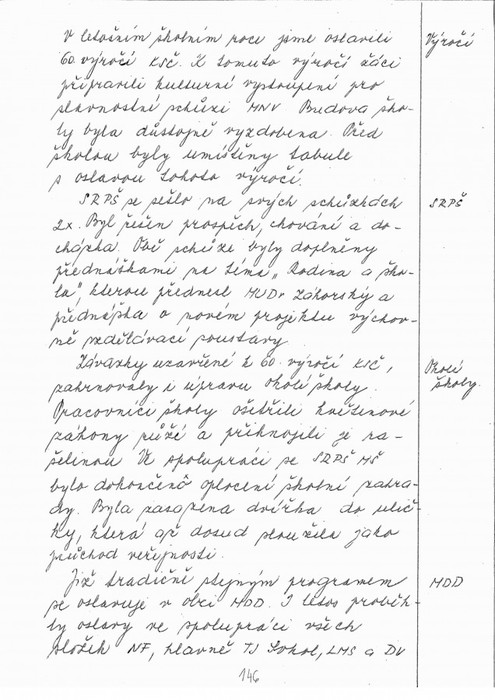 V letošním školním roce jsme oslavili Výročí
60. výročí KSČ. K tomuto výročí žáci
připravili kulturní vystoupení pro
slavnostní schůzi MNV Budova ško-
ly byla důstojně vyzdobena. Před
školou byly umístěny tabule
s oslavou tohoto výročí.
SRPŠ se sešlo na svých schůzkách SRPŠ
2x. Byl řešen prospěch, chování a do-
cházka. Obě schůze byly doplněny
přednáškami na téma „Rodina a ško-
la", kterou přednesl MUDr Záhorský a
přednáška o novém projektu výchov-
ně vzdělávací soustavy.
Závazky uzavřené k 60. výročí KSČ, Okolí
zahrnovaly i úpravu okolí školy. školy.
Pracovníci školy ošetřili květinové
záhony růží a přihnojili je ra-
šelinou Ve spolupráci se SRPŠ MŠ
bylo dokončeno oplocení školní zahra-
dy. Byla zasazena dvířka do ulič-
ky, která až dosud sloužila jako
průchod veřejnosti.
Již tradičně stejným programem MDD
se oslavuje v obci MDD. I letos proběh-
ly oslavy ve spolupráci všech
složek NF, hlavně TJ Sokol, LMS a DV
146